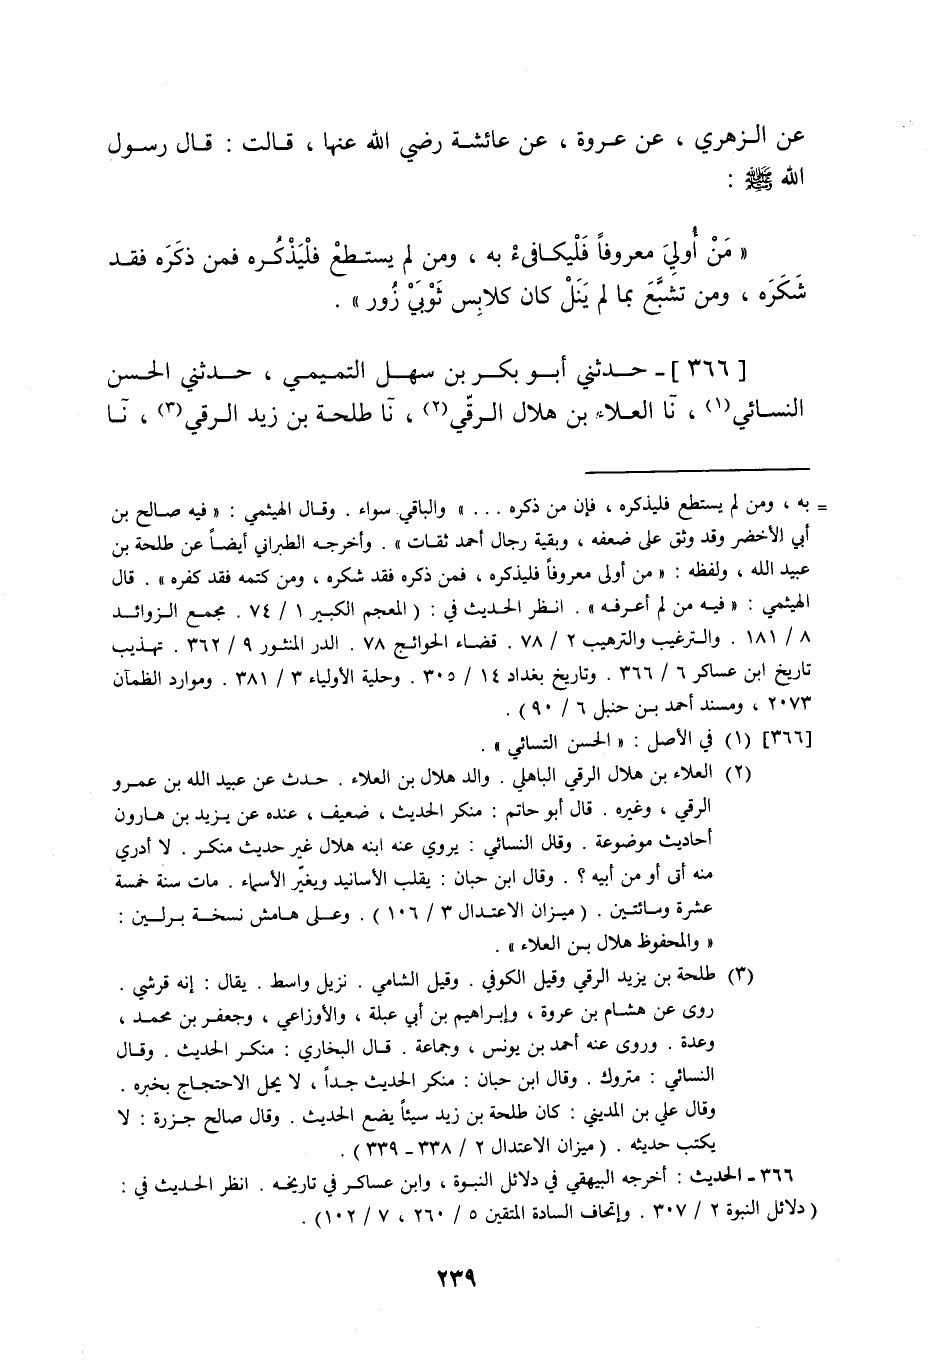 عن الـزهري ، عن عـروة ، عن عائشـة رضي الله عنها ، قـالت : قـال رسـول
الله ﷺ :
« مَنْ أُوليَ معروفاً فَلْيكـافىءْ به ، ومن لم يستـطعْ فلْيَذْكُـره فمن ذكَرَه فقـد
شَكَرَه ، ومن تشبَّعَ بما لم يَنَلْ كان كلابِس ثَوْبَيْ زُور » .
[ ٣٦٦ ] ـ حـدثني أبـو بكـر بن سهـل التميمي ، حـدثني الحسن
النسـائي(١) ، نَا العـلاء بن هلال الـرقّي(٢) ، نَا طلحـة بن زيد الـرقي(٣) ، نَـا
= به ، ومن لم يستطع فليذكره ، فإن من ذكره ... » والباقي سواء . وقـال الهيثمي : « فيه صـالح بن
أبي الأخضر وقد وثق على ضعفه ، وبقية رجال أحمد ثقـات » . وأخرجـه الطبراني أيضـاً عن طلحـة بن
عبيد الله ، ولفظه : « من أولى معروفاً فليذكره ، فمن ذكره فقد شكره ، ومن كتمه فقد كفره » . قال
الهيثمي : « فيـه من لم أعـرفـه » . انـظر الحـديث في : ( المعجم الكبير ١ / ٧٤ . مجمـع الـزوائـد
٨ / ١٨١ . والـترغيب والترهيب ٢ / ٧٨ . قضـاء الحوائـج ٧٨ . الدر المنثـور ٩ / ٣٦٢ . تهـذيب
تاريخ ابن عساكر ٦ / ٣٦٦ . وتاريخ بغداد ١٤ / ٣٠٥ . وحلية الأولياء ٣ / ٣٨١ . وموارد الظمآن
٢٠٧٣ ، ومسند أحمد بـن حنبل ٦ / ٩٠) .
[٣٦٦] (١) في الأصل : « الحسن التسائي » .
(٢) العلاء بن هلال الرقي الباهلي . والد هلال بن العلاء . حـدث عن عبيد الله بن عمـرو
الرقي ، وغيره . قال أبو حاتم : منكر الحديث ، ضعيف ، عنده عن يـزيد بن هـارون
أحاديث موضوعة . وقال النسائي : يروي عنه ابنه هلال غير حديث منكـر . لا أدري
منه أتى أو من أبيه ؟ . وقال ابن حبان : يقلب الأسانيد ويغيّر الأسماء . مات سنة خمسة
عشرة ومـائتـين . ( ميـزان الاعتـدال ٣ / ١٠٦ ) . وعـلى هـامش نسخـة بـرلـين :
« والمحفوظ هلال بـن العلاء » .
(٣) طلحة بن يزيد الرقي وقيل الكوفي . وقيل الشامي . نزيل واسط . يقال : إنه قرشي .
روى عن هشـام بن عروة ، وإبـراهيم بن أبي عبلة ، والأوزاعي ، وجعفـر بن محمـد ،
وعدة . وروى عنه أحمد بن يونس ، وجماعة . قـال البخاري : منكـر الحديث . وقـال
النسائي : متروك . وقال ابن حبان : منكر الحديث جـداً ، لا يحل الاحتجـاج بخبره .
وقال علي بن المديني : كان طلحة بن زيد سيئاً يضع الحديث . وقال صالح جزرة : لا
يكتب حديثه . ( ميزان الاعتدال ٢ / ٣٣٨ ـ ٣٣٩ ) .
٣٦٦ ـ الحديث : أخرجه البيهقي في دلائل النبـوة ، وابن عسـاكر في تاريخـه . انظر الحـديث في :
( دلائل النبوة ٢ / ٣٠٧ . وإتحاف السادة المتقين ٥ / ٢٦٠ ، ٧ / ١٠٢) .
٢٣٩